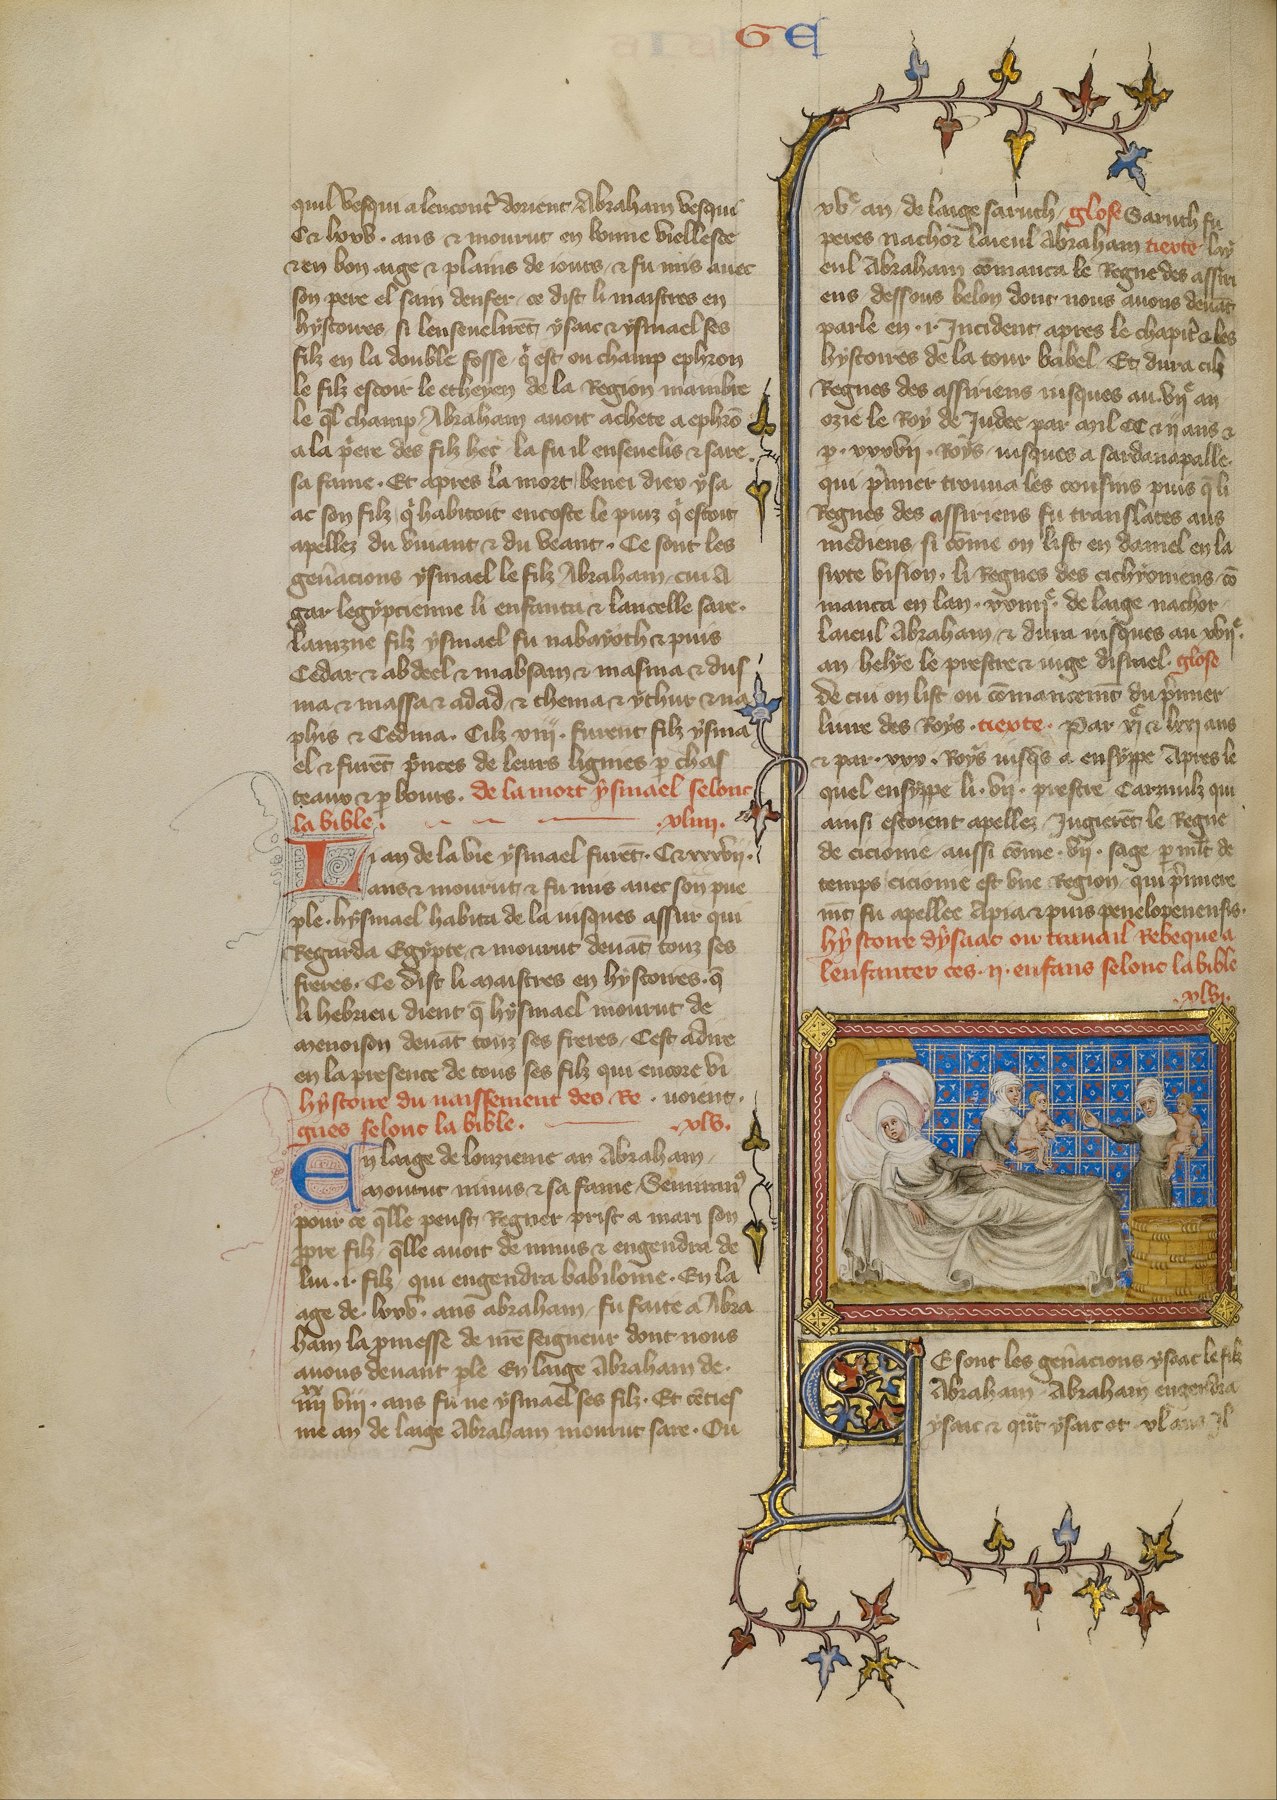 GE
quil vesqui alencont' dorient Abraham vesqui
C & lxxv . ans & mourut en bonne viellesce
& en bon aage & plains de iours, & fu mis auec
son pere el sain denfer, ce dist li maistres en
hystoires, si lenseuelirēt ysaac & ysmael ses
filz en la double fosse, q' est ou champ ephron
le filz escour le etheyen de la Region mambre
le q̄l champ Abraham auoit achete a ephrō
a la p'ere des filz hec, la fu il enseuelis & sare
sa fame . Et apres la mort benei diex ysa
ac son filz, q' habitoit encoste le puiz q' estoit
apellez du viuant & du veant . Ce sont les
gen̄acions ysmael le filz Abraham, cui A
gar legypcienne li enfanta & lancelle sare .
lainzne filz ysmael fu nabayoth & puis
Cedar & abdeel & mabsam & masma & dus
ma & massa & adad, & thema & ythur & na
phis & Cedma . Cilz viii . furent filz ysma
el & furēt p'nces de leurs lignies p chas
teaux & p bours . de la mort ysmael selonc
la bible . .xliiii.
Li an de la vie ysmael furēt . C & xxxvii .
ans & mourut, & fu mis auec son pue
ple . hysmael habita de la iusques assur qui
Regarda Egypte, & mourut deuāt touz ses
freres . Ce dist li maistres en hystoires . q̄
li hebrieu dient q̄ hysmael mourut de
menoison deuāt touz ses freres, Cest adire
en la presence de tous ses filz qui encore vi
hystoire du naissement des Re . uoient .
gnes selonc la bible . .xlv.
En laage de lonzieme an Abraham,
mourut ninus & sa fame, Semiram'
pour ce q̄lle peust Regner prist a mari son
ppre filz, q̄lle auoit de ninus & engendra de
lui . i . filz, qui engendra babiloine . En la
age de . lxxv . ans abraham, fu faite a Abra
ham la pmesse de nr̄e seigneur dont nous
auons deuant ple En laage Abraham de .
iiii viii . ans fu ne ysmael ses filz . Et cēties
me an de laage Abraham mourut sare . Ou
xve an, de laage saruch, glose Saruch fu
peres nachor laieul Abraham texte . lay
eul Abraham cōmanca le Regne des assiri
ens, dessous belon dont nous auons deuāt
parle en . i . Incident apres le chapit' & les
hystoires de la tour babel . Et dura cilz
Regnes des assiriens iusques au . vii e an
ozie le Roy de Judee par mil CC & ii ans &
p . xxxvii . Roys, iusques a sardanapalle .
qui p'mier trouua les coussins puis q̄ li
Regnes des assiriens fu translates aus
mediens, si cōme on list en daniel en la
sixte vision . li Regnes des cichyoniens, cō
manca en lan . de laage nachor,
laieul Abraham, & dura iusques au xvii e .
an helye le prestre & iuge disrael . glose
de cui on list ou cōmancem̄t du p'mier
liure des Roys . texte . Par vi C & lxxi ans
& par . xxv . Roys iusq̄s a ensyppe Apres le
quel ensyppe li . vii . prestre Carmilz qui
ainsi estoient apellez Jugierēt le Regne
de cicionie, aussi cōme . vii . sage p m̄lt de
temps, cicionie est vne Region, qui p'miere
mēt fu apellee Apia & puis penelopenensis .
hystoire dysaac ou trauail Rebeque a
lenfanter ces . ii . enfans selonc la bible
.xlvi.
Ce sont les gen̄acions ysaac le filz
Abraham . Abraham engendra
ysaac & qūt ysaac ot . xl ans Jl